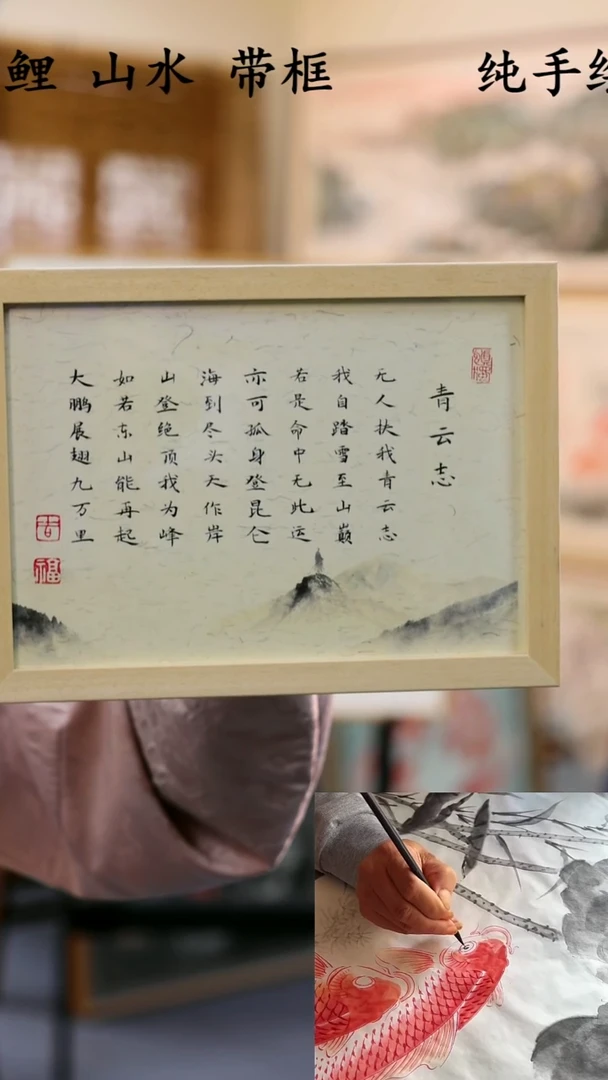 鲤 山水 带框 纯手绘
青云志
无人扶我青云志
我自踏雪至山巅
若是命中无此运
亦可孤身登昆仑
海到尽头天作岸
山登绝顶我为峰
如若东山能再起
大鹏展翅九万里
吉
福